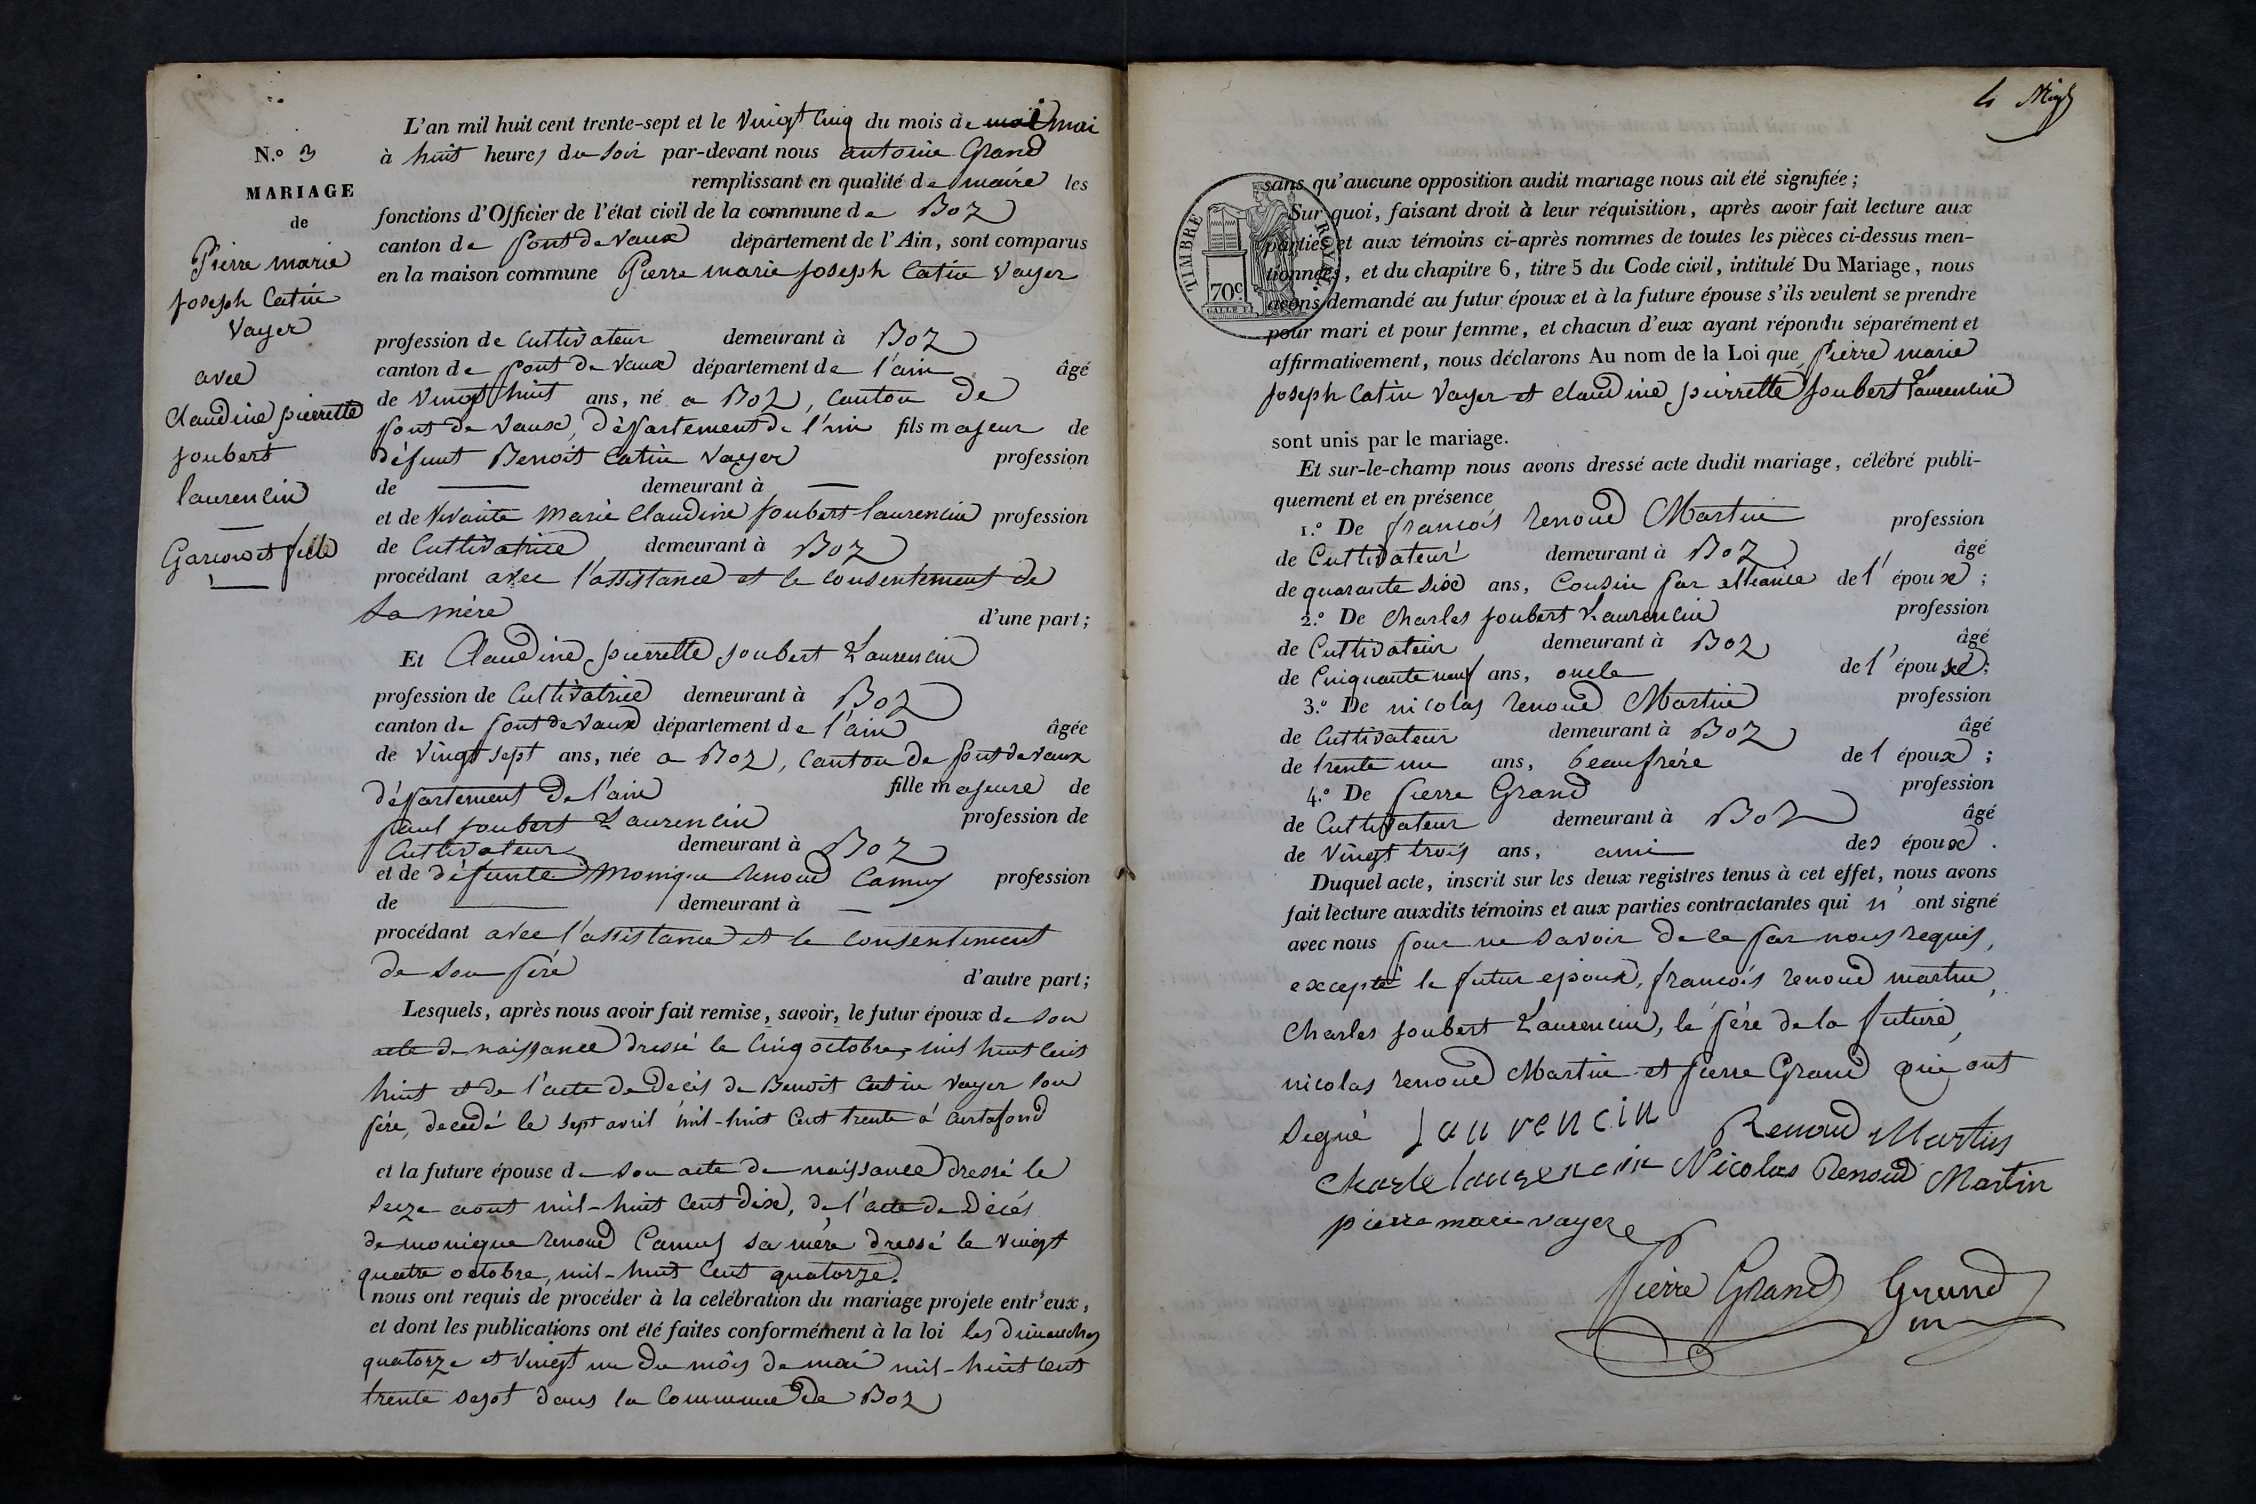 N.º 3
MARIAGE
de
Pierre marie
joseph Catin
Vayer
avec
Claudine pierrette
joubert
laurencin
Garcon et fille
L'an mil huit cent trente-sept et le Vingt Cinq du mois de mai mai
à huit heures du soir par-devant nous antoine Grand
remplissant en qualité de maire les
fonctions d'Officier de l'état civil de la commune de Boz
canton de pont de Vaux département de l'Ain, sont comparus
en la maison commune Pierre marie joseph Catin Vayer
profession de Cultivateur demeurant à Boz
canton de pont de Vaux département de l'ain âgé
de Vingt huit ans, né a Boz, Canton de
pont de Vaux, département de l'ain fils majeur de
défunt Benoit Catin Vayer profession
de demeurant à
et de Vivante Marie Claudine joubert laurencin profession
de Cultivatrice demeurant à Boz
procédant avec l'assistance et le consentement de
sa mère d'une part;
Et Claudine pierrette joubert Laurencin
profession de Cultivatrice demeurant à Boz
canton de pont de Vaux département de l'ain âgée
de Vingt sept ans, née a Boz, Canton de pont de Vaux
département de l'ain fille majeure de
paul joubert Laurencin profession de
Cultivateur demeurant à Boz
et de défunte Monique Renoud Camus profession
de demeurant à
procédant avec l'assistance et le consentement
de son père d'autre part;
Lesquels, après nous avoir fait remise, savoir, le futur époux de son
acte de naissance dressé le Cinq octobre, mil huit Cent
huit et de l'acte de Décés de Benoit Catin Vayer son
père, décédé le sept avril mil-huit Cent trente à Curtafond
et la future épouse de son acte de naissance dressé le
seize aout mil-huit Cent dix, de l'acte de Décés
de monique Renoud Camus sa mère dressé le Vingt
quatre octobre, mil-huit Cent quatorze.
nous ont requis de procéder à la celébration du mariage projete entr'eux,
et dont les publications ont été faites conformément à la loi les dimanches
quatorze et Vingt un du môis de mai mil-huit Cent
trente sept dans la Commune de Boz
TIMBRE ROYAL
70c.
sans qu'aucune opposition audit mariage nous ait été signifiée;
Sur quoi, faisant droit à leur réquisition, après avoir fait lecture aux
parties et aux témoins ci-après nommes de toutes les pièces ci-dessus men-
tionnées, et du chapitre 6, titre 5 du Code civil, intitulé Du Mariage, nous
avons demandé au futur époux et à la future épouse s'ils veulent se prendre
pour mari et pour femme, et chacun d'eux ayant répondu séparément et
affirmativement, nous déclarons Au nom de la Loi que Pierre marie
joseph Catin Vayer et Claudine pierrette joubert Laurencin
sont unis par le mariage.
Et sur-le-champ nous avons dressé acte dudit mariage, célébré publi-
quement et en présence
1.º De francois Renoud Martin profession
de Cultivateur demeurant à Boz âgé
de quarante six ans, Cousin par alliance de l'époux;
2.º De Charles joubert Laurencin profession
de Cultivateur demeurant à Boz âgé
de Cinquante neuf ans, oncle de l'épouse;
3.º De nicolas Renoud Martin profession
de Cultivateur demeurant à Boz âgé
de trente un ans, beaufrére de l époux;
4.º De pierre Grand profession
de Cultivateur demeurant à Boz âgé
de Vingt trois ans, ami des époux.
Duquel acte, inscrit sur les deux registres tenus à cet effet, nous avons
fait lecture auxdits témoins et aux parties contractantes qui n'ont signé
avec nous pour ne savoir de ce par nous requis,
excepté le futur epoux, francois renoud martin,
Charles joubert Laurencin, le pére de la future,
nicolas renoud Martin et pierre Grand qui ont
signé Lauvencin Renoud Martin
Charle laurencin Nicolas Renoud Martin
pierre marie vayer
Pierre Grand Grand
m